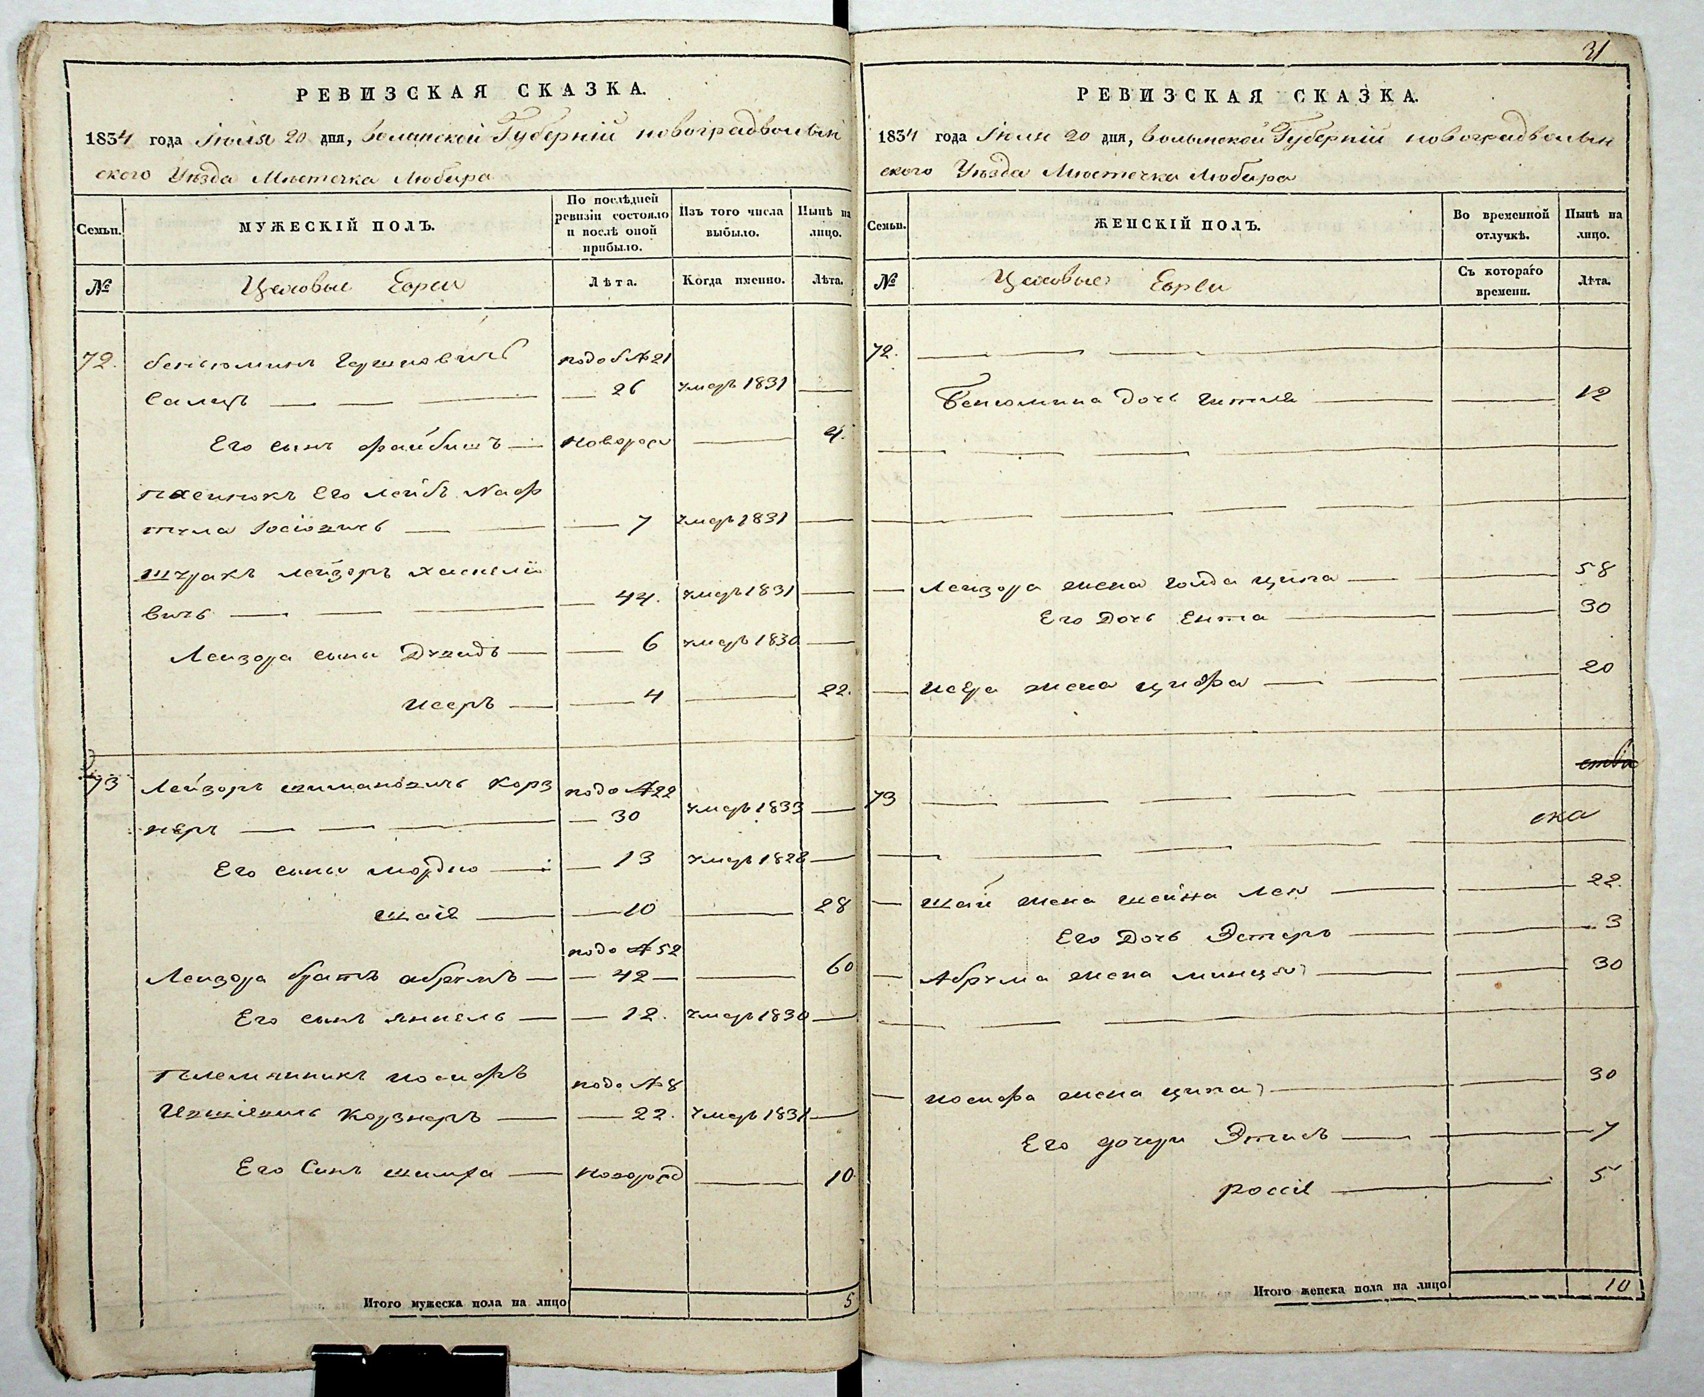 РЕВИЗСКАЯ СКАЗКА.
1834 года Июля 20 дня, Волынской Губернии Новоградволын
ского Уѣзда Мѣстечка Любара
Семьи.
МУЖЕСКІЙ ПОЛЪ.
По послѣдней ревизіи состояло и послѣ оной прибыло.
Изъ того числа выбыло.
Нынѣ на лицо.
№
Цеховые Евреи
Лѣта.
Когда именно.
Лѣта.
72.
Беньюминъ Гершковичъ подо № 21
Салицъ 26 умеръ 1831
Его сынъ Файбишъ новорож 4.
Пасинокъ Его Лейбъ Наф
тула Іосіовичъ 7 умеръ 1831
Штракъ Лейзоръ Хаскелё
вичъ 44. умеръ 1831
Лейзора сыны Дувидъ 6 умеръ 1830
Исеръ 4 22.
73
Лейзоръ Шимановичъ Корз подо № 22
неръ 30 умеръ 1833
Его сыны Мордко 13 умеръ 1828
Шаія 10 28
подо № 52
Лейзора братъ Абрумъ 42 60
Его сынъ Янкель 12. умеръ 1830
Племянникъ Иосифъ подо № 8
Корзнеръ 22. умеръ 1831
Его Синъ Шимха новорож 10
Итого мужеска пола на лицо 5
31
РЕВИЗСКАЯ СКАЗКА.
1834 года Июля 20 дня, Волынской Губернии Новоградволын
ского Уѣзда Мѣстечка Любара
Семьи.
ЖЕНСКІЙ ПОЛЪ.
Во временной отлучкѣ.
Нынѣ на лицо.
№
Цеховые Евреи
Съ котораго времени.
Лѣта.
72.
Беньюмина дочь Гитля 12
Лейзора жена Голда Ципа 58
Его Дочь Ента 30
Исера жена Цифра 20
73
Шаи жена Шейна Лея 22.
Его Дочь Эстеръ 3
Абрума жена Минця 30
Иосифа жена Ципа 30
Его дочери Этель 7
Россія 5
Итого женска пола на лицо 10